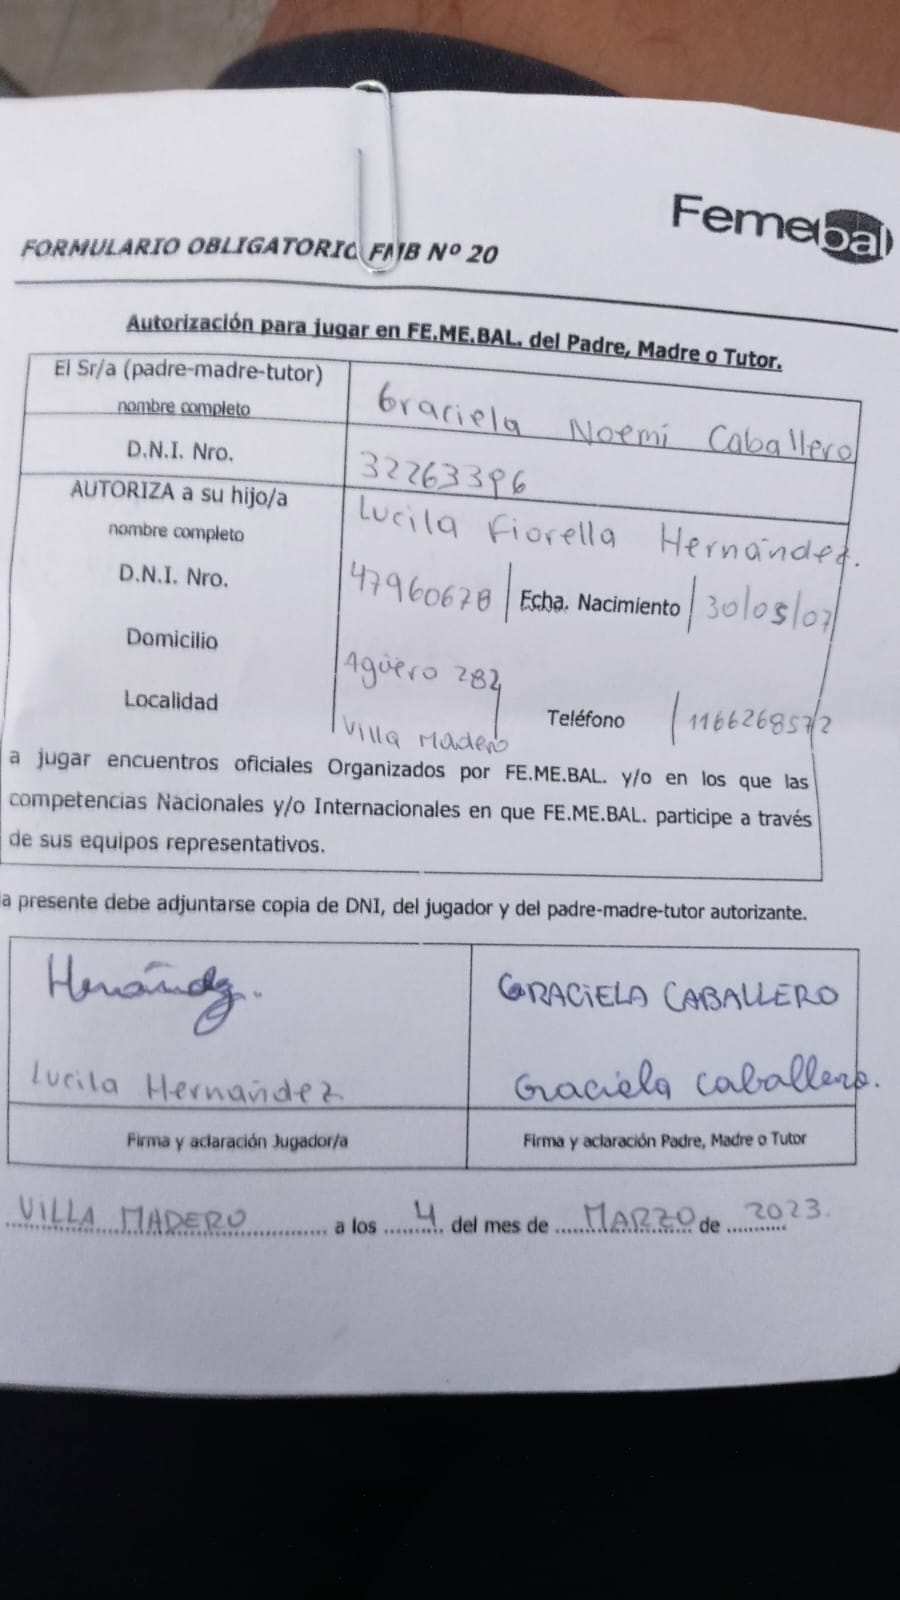 Femebal
FORMULARIO OBLIGATORIO FMB Nº 20
Autorización para jugar en FE.ME.BAL. del Padre, Madre o Tutor.
El Sr/a (padre-madre-tutor)
nombre completo
Graciela Noemí Caballero
D.N.I. Nro.
32263396
AUTORIZA a su hijo/a
nombre completo
Lucila Fiorella Hernández.
D.N.I. Nro.
47960678 Fcha. Nacimiento 30/05/07
Domicilio
Agüero 282
Localidad
Villa Madero
Teléfono 1166268572
a jugar encuentros oficiales Organizados por FE.ME.BAL. y/o en los que las
competencias Nacionales y/o Internacionales en que FE.ME.BAL. participe a través
de sus equipos representativos.
la presente debe adjuntarse copia de DNI, del jugador y del padre-madre-tutor autorizante.
Hernández.
Lucila Hernández
Firma y aclaración Jugador/a
GRACIELA CABALLERO
Graciela Caballero.
Firma y aclaración Padre, Madre o Tutor
VILLA MADERO a los 4 del mes de MARZO de 2023.